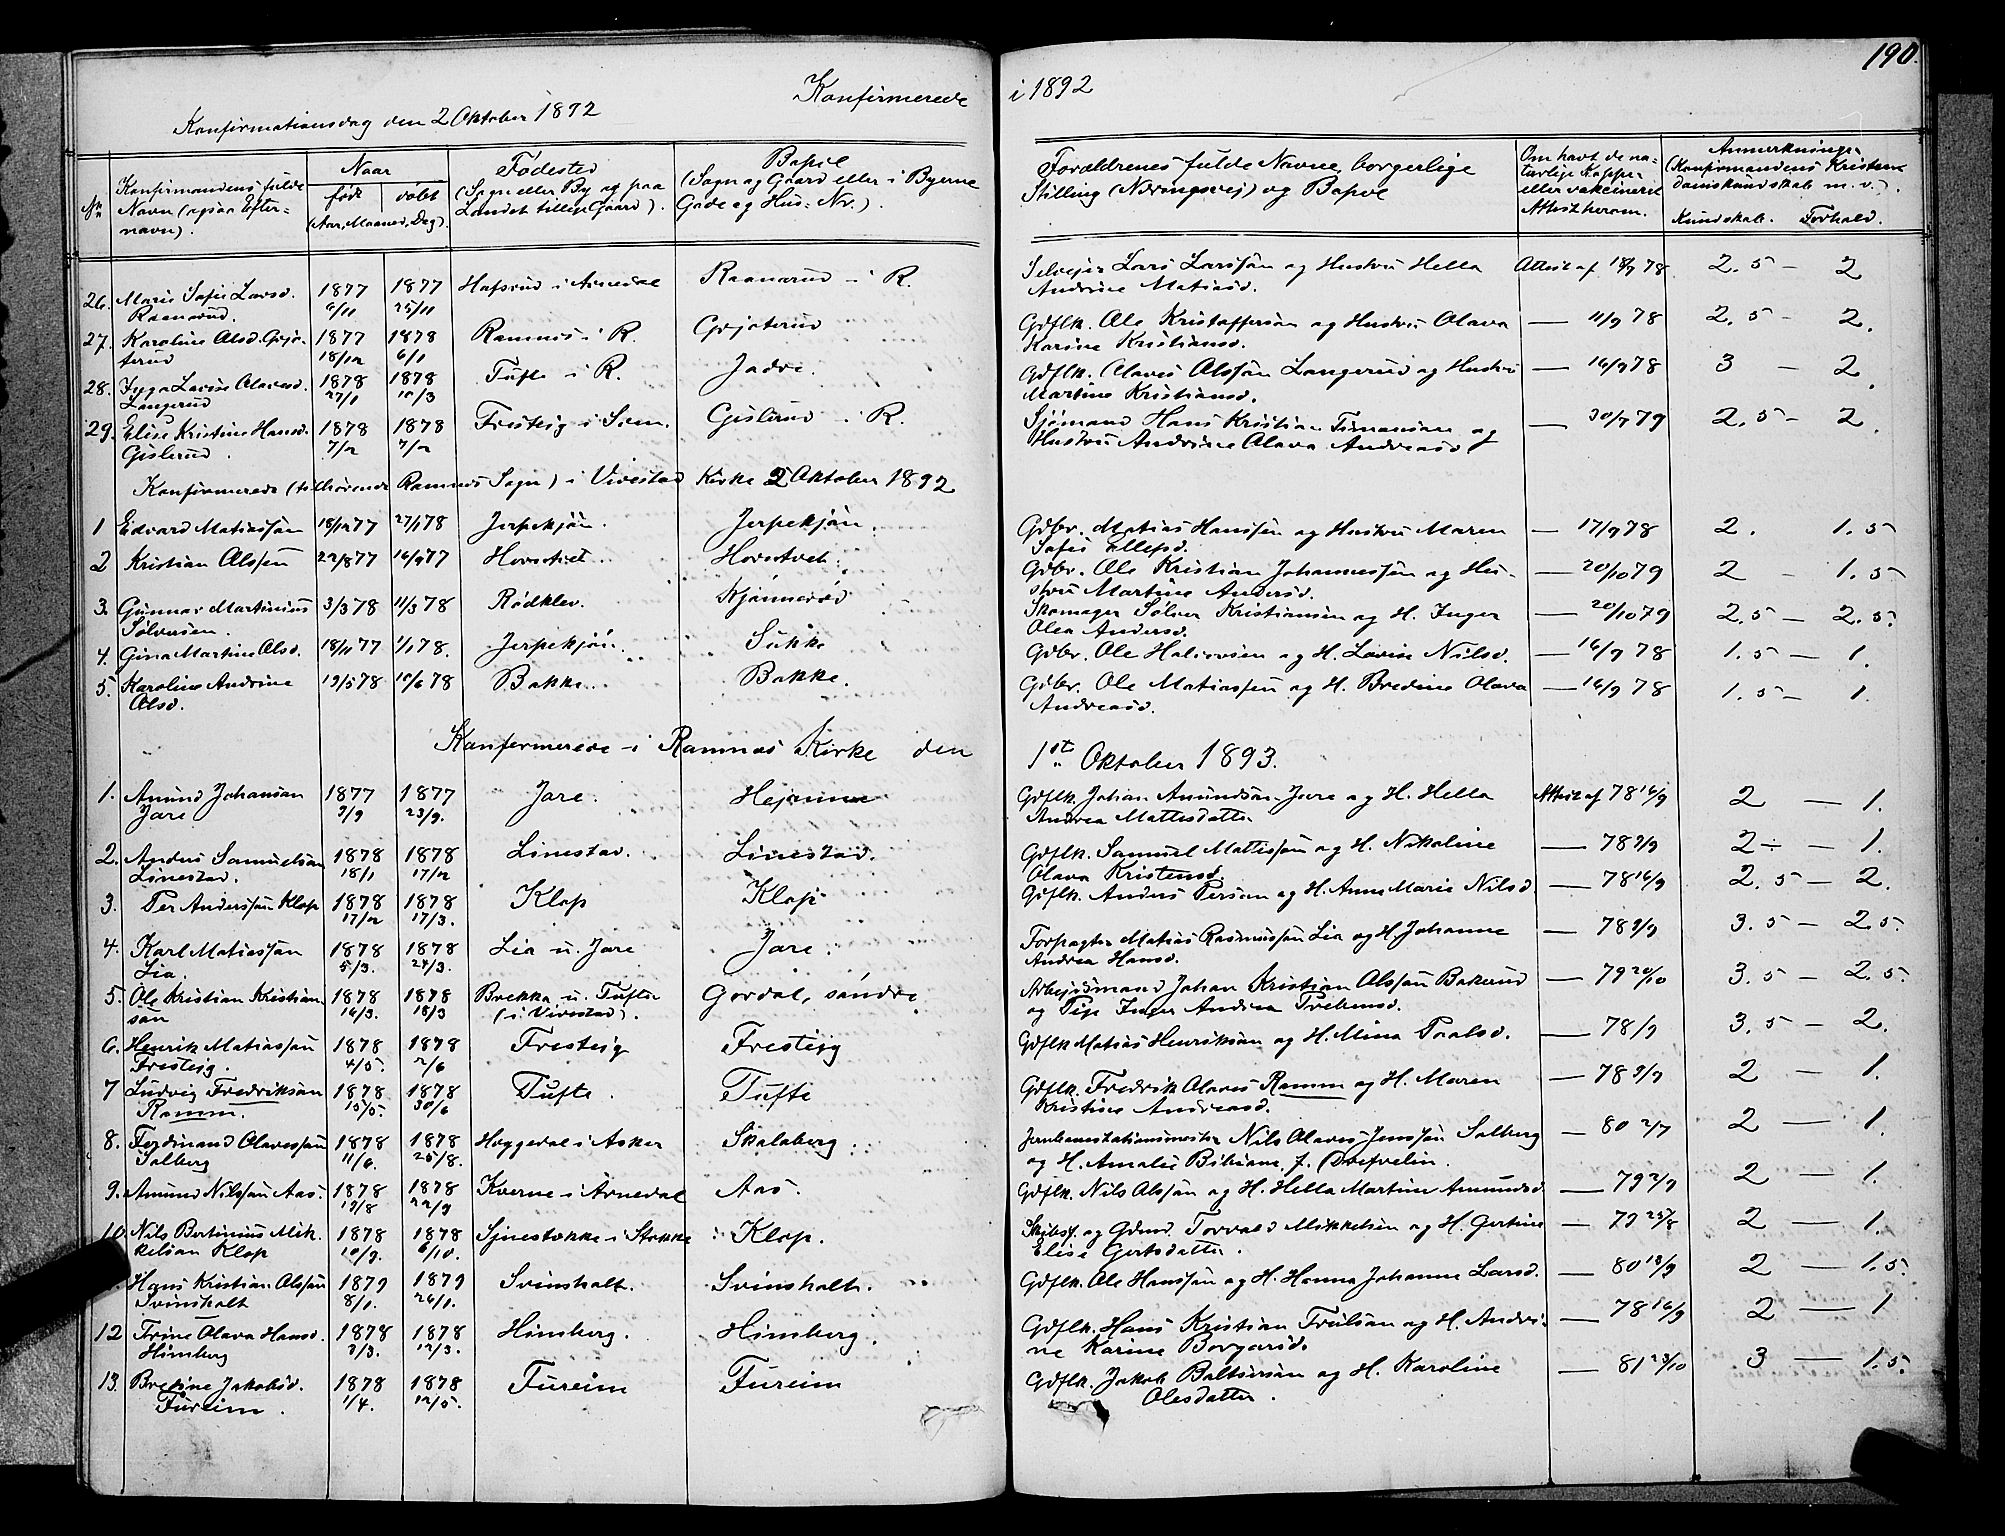 190.
Konfirmerede i 1892
Konfirmationsdag den 2 Oktober 1892
No Konfirmandens fulde Navn (ogsaa Efternavn). Naar født døbt (Aar, Maaned, Dag). Fødested (Sogn eller By og paa Landet tillige Gaard). Bopæl (Sogn og Gaard eller i Byerne Gade og Hus-Nr.). Forældrenes fulde Navne, borgerlige Stilling (Næringsvej) og Bopæl Om havt de naturlige Kopper eller vaksineret Attest herom. Anmerkninger (Konfirmandens Kristendomskundskab m.v.). Kundskab. Forhold.
26. Marie Sofie Larsd. 1877 1877 Hafsrud i Arnedal Raanerud i R. Selvejer Lars Larssøn og Hustru Hella Attest af 18/9 78 2.5 — 2
Raanerud. 6/11 25/11 Andrine Matiasd.
27. Karoline Olsd. Grjo- 1877 1878 Ramnes i R. Grjoterud Gdflk. Ole Kristoffersøn og Hustru Olava — 11/9 78 2.5 — 2.
terud 18/12 6/1 Karine Kristiansd.
28. Inga Lovise Olavesd. 1878 1878 Tufte i R. Jadre. Gdflk. Olaves Olssøn Langerud og Hustru — 16/9 78 3 — 2.
Langerud 27/1 10/3 Martine Kristiansd.
29. Elise Kristine Hansd. 1878 1878 Frestejg i Sem. Gislerud i R. Sjømand Hans Kristian Simansen og — 30/7 79 2.5 — 2.
Gislerud. 7/2 7/2 Hustru Andrine Olava Andreasd.
Konfirmerede (tilhørende Ramnes Sogn) i Vivestad Kirke 2 Oktober 1892
1 Edvard Matiassøn 18/12 77 27/1 78 Jerpekjøn. Jerpekjøn. Gdbr. Matias Hanssøn og Hustru Maren — 17/9 78 2. 1.5
Sofie Ellefsd.
2 Kristian Olssøn 22/8 77 16/9 77 Hovstvet. Hovstvet. Gdbr. Ole Kristian Johannessøn og Hu- — 20/10 79 2 — 1.5
stru Martine Andersd.
3. Gunnar Martinius 3/3 78 11/3 78 Rødklev. Kjønnerød Skomager Sølver Kristiansen og H. Inger — 20/10 79 2.5 — 2.5.
Sølversen. Olea Andersd.
4. Gina Martine Olsd. 18/11 77 1/1 78. Jerpekjøn. Sukke Gdbr. Ole Halvorsen og H. Lovise Nilsd. — 16/9 78 1.5 — 1.
5. Karoline Andrine 19/5 78 10/6 78 Bakke. Bakke. Gdbr. Ole Matiassøn og H. Bredine Olava — 16/9 78 1.5 — 1.
Olsd. Andreasd.
Konfirmerede i Ramnes Kirke den 1st Oktober 1893.
1. Amund Johansøn 1877 1877 Jare. Gdflk. Johan Amundsøn Jare og H. Hella Attest af 78 16/9 2 — 1.
Jare 3/9 23/9. Andrea Mattisdatter
2. Anders Samuelsøn 1878 1878 Linestad. Linestad. Gdflk. Samuel Mattissøn og H. Nikoline — 78 9/9 2÷ — 1.
Linestad. 18/1 17/12 Olava Kristensd.
3. Per Anderssøn Klop 1878 1878 Klop Klop Gdflk. Anders Persøn og H. Anne Marie Nilsd — 78 16/9 2.5 — 2.
17/2 17/3.
4. Karl Matiassøn 1878 1878 Lia u. Jare Jare. Forpagter Matias Rasmussøn Lia og H. Johanne — 78 9/9 3.5 — 2.5.
Lia. 5/3. 24/3. Andrea Hansd.
5. Ole Kristian Kristian- 1878 1878 Brekka u. Tufte Gordal, søndre Arbejdsmand Johan Kristian Olssøn Bakerud — 79 20/10 3.5 — 2.5.
søn 16/3. 18/3 (i Vivestad). og Pige Inger Andrea
6. Henrik Matiassøn 1878 1878 Frestejg Frestejg Gdflk Matias Henriksøn og H. Mina Paalsd. — 78 /9 3.5 — 2.
Frestejg. 4/5. 2/6
7 Ludvig Fredriksøn 1878 1878 Tufte. Tufte Gdflk. Fredrik Olaves Ramm og H. Maren — 78 9/9 2 — 1.
Ramm. 15/5. 30/6 Kristine Andreasd.
8. Ferdinand Olavessøn 1878 1878 Hoggeval i Asker Skalaberg. Jernbanestationsmester Nils Olaves Jenssøn Solberg — 80 2/7 2 — 1.
Solberg 11/6. 25/8. og H. Amalie Bibiane, f.
9. Amund Nilssøn Aas. 1878 1878 Kverne i Arnedal Aas. Gdflk. Nils Olssøn og H. Hella Martine Amundsd — 79 2/9 2 — 1.
19/8 22/9
10. Nils Bertinius Mik- 1878 1878 Sjuestokke i Stokke Klop. Skibsf. og Gdmd. Torvald Mikkelsen og H. Gertine — 79 25/8 2 — 1.
kelsøn Klop 10/9. 6/10. Elise Gertsdatter.
Hans Kristian Olssøn 1879 1879 Svinsholt. Svinsholt. Gdflk. Ole Hanssøn og H. Hanna Johanne Larsd. — 80 13/9 2 — 1.5.
Svinsholt 8/1. 26/1.
12 Trine Olava Hansd. 1878 1878 Himberg. Himberg. Gdflk. Hans Kristian Trulsøn og H. Andri- — 78 16/9 2 — 1
Himberg 3/3. 12/3. ne Karine Borgarsd.
13. Bredine Jakobsd. 1878 1878 Fureim Fureim Gdflk. Jakob Baltsersøn og H. Karoline — 81 23/10 3 — 1.5.
Fureim. 1/4. 12/5. Olesdatter.